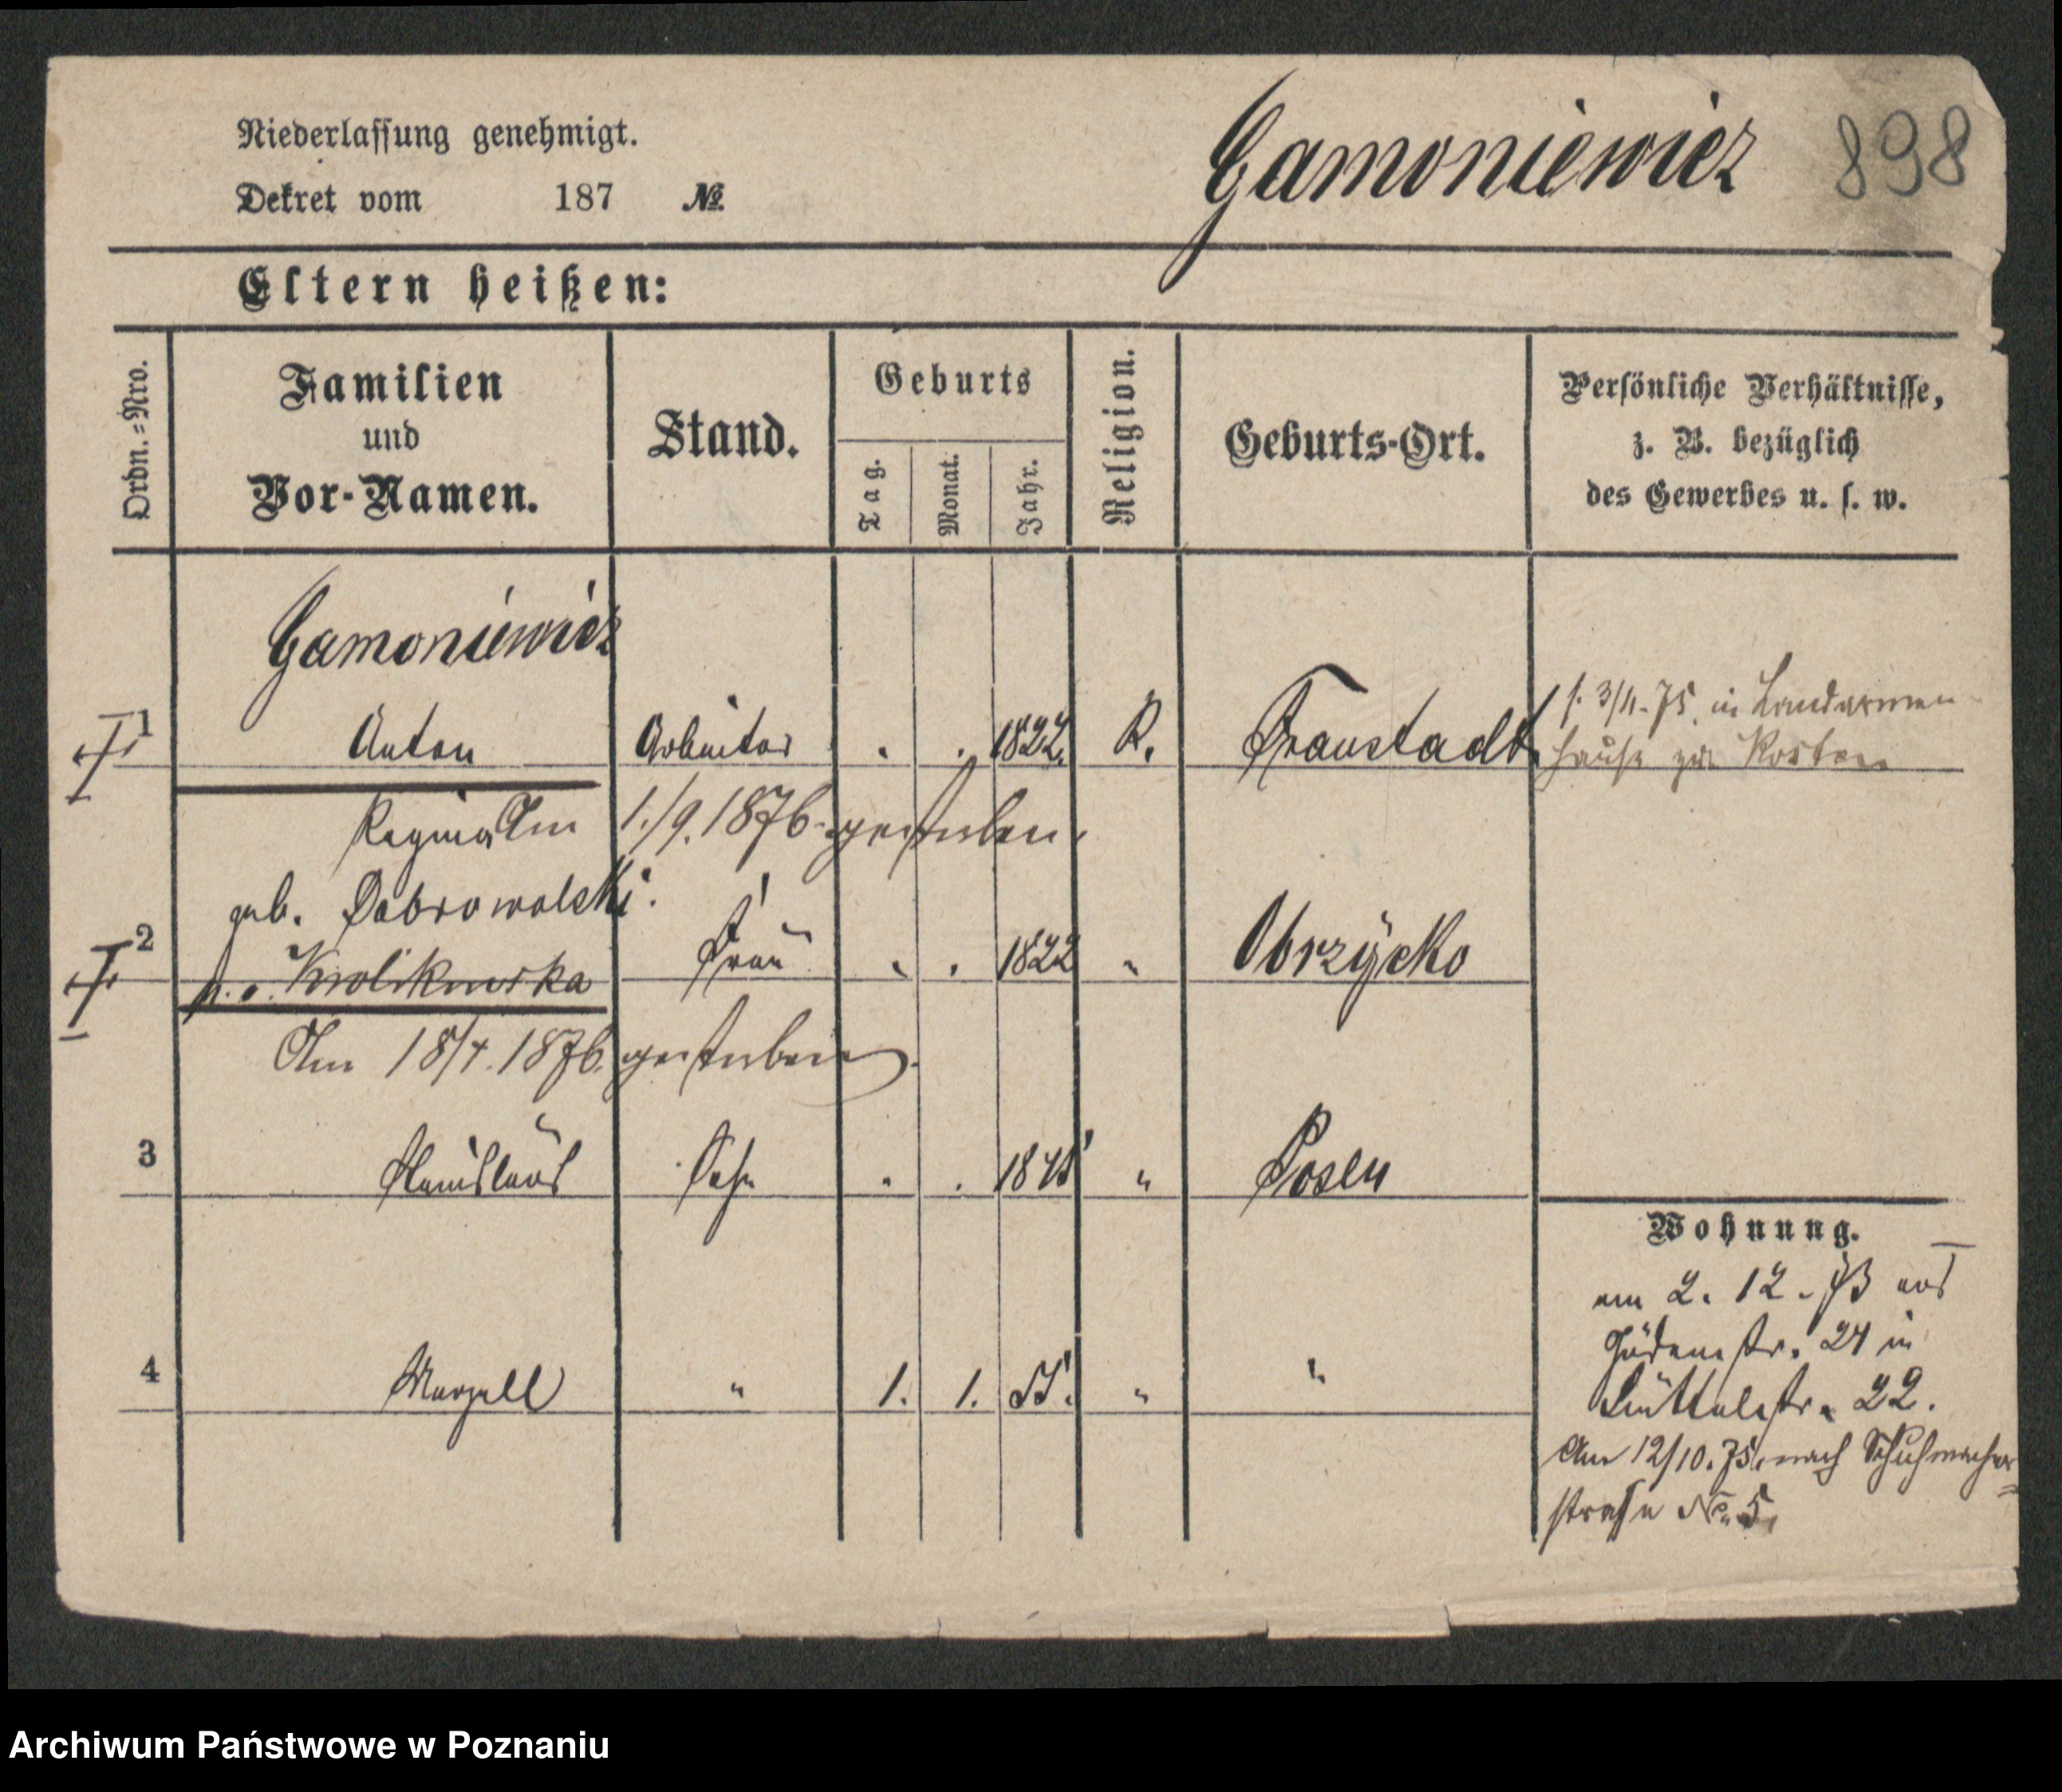 Niederlassung genehmigt.
Dekret vom 187 №
Gamoniewicz 898
Eltern heißen:
Ordn.=Nro.
Familien
und
Vor-Namen.
Stand.
Geburts
Tag.
Monat.
Jahr.
Religion.
Geburts-Ort.
Persönliche Verhältnisse,
z. B. bezüglich
des Gewerbes u. s. w.
Gamoniewicz
1 Anton Arbeiter . . 1822. R. Fraustadt
s. 3/11.75. in Landarmen
hause zu Kosten
Am 1./9.1876. gestorben.
Regina
geb. Dobrowolski.
2 Krolikowska Frau . . 1822 " Obrzycko
Am 18/4.1876. gestorben.
3 Stanislaus Sohn . . " Posen
4 Marzell " 1. 1. 55. " "
Wohnung.
am 2. 12. 73 aus
Judenstr. 24 in
Büttelstr. 22.
Am 12/10.75. nach Schuhmacher=
strasse No. 5.
Archiwum Państwowe w Poznaniu